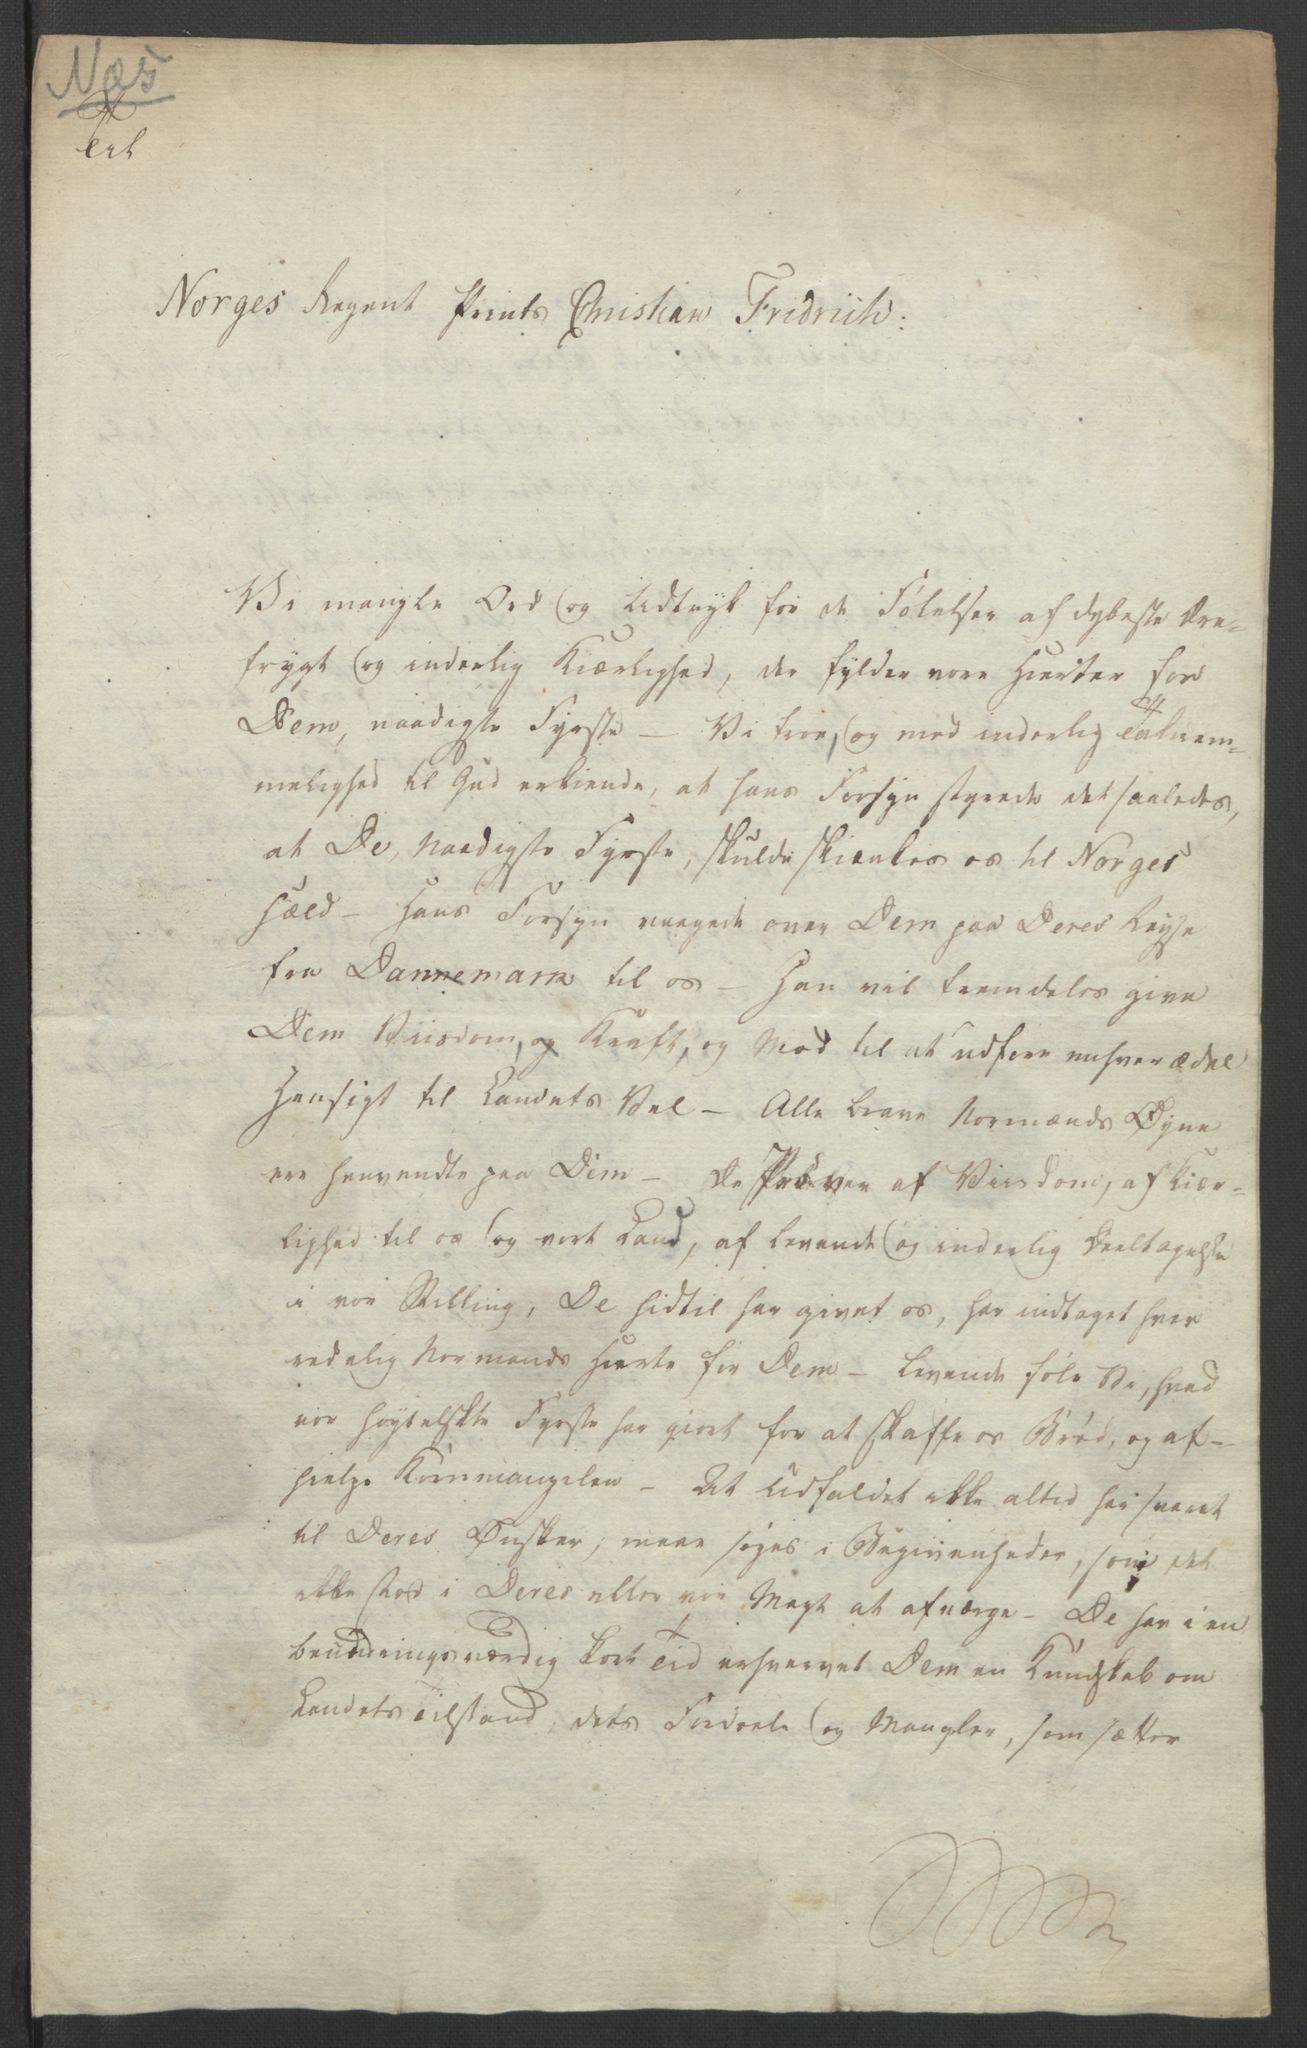 Næs
Til
Norges Regent Prints Christian Fridrich:
Vi mangle Ord og Udtryk for de Følelser af dybeste Ære-
frygt og inderlig Kiærlighed, der fylder vore Hierter for
Dem, naadigste Fyrste — Vi troe, og med inderlig Taknem-
melighed til Gud erkiende, at hans Forsyn styrede det saaledes,
at De, Naadigste Fyrste, skulde skienkes os til Norges
Held — Hans Forsyn vaagede over Dem paa Deres Reyse
fra Dannemark til os — Han vil fremdeles give
Dem Viisdom, og Kraft, og Mod til at udføre enhver ædel
Hensigt til Landets Vel — Alle brave Normænds Øyne
ere henvendte paa Dem — De Prøver af Viisdom, af Kiær-
lighed til os og vort Land, af levende og inderlig Deeltagelse
i vor Stilling, De hidtil har givet os, har indtaget hver
redelig Normands Hierte for Dem — Levende føle Vi, hvad
vor høytelskte Fyrste har giort for at skaffe os Brød, og af-
hielpe Kornmangelen — At Udfaldet ikke altid har svaret
til Deres Ønsker, maae søges i Begivenheder, som det
ikke stod i Deres eller vor Magt at afværge — De har i en
beundringsværdig kort Tid erhvervet Dem en Kundskab om
Landets Tilstand, dets Fordeele og Mangler, som sætter